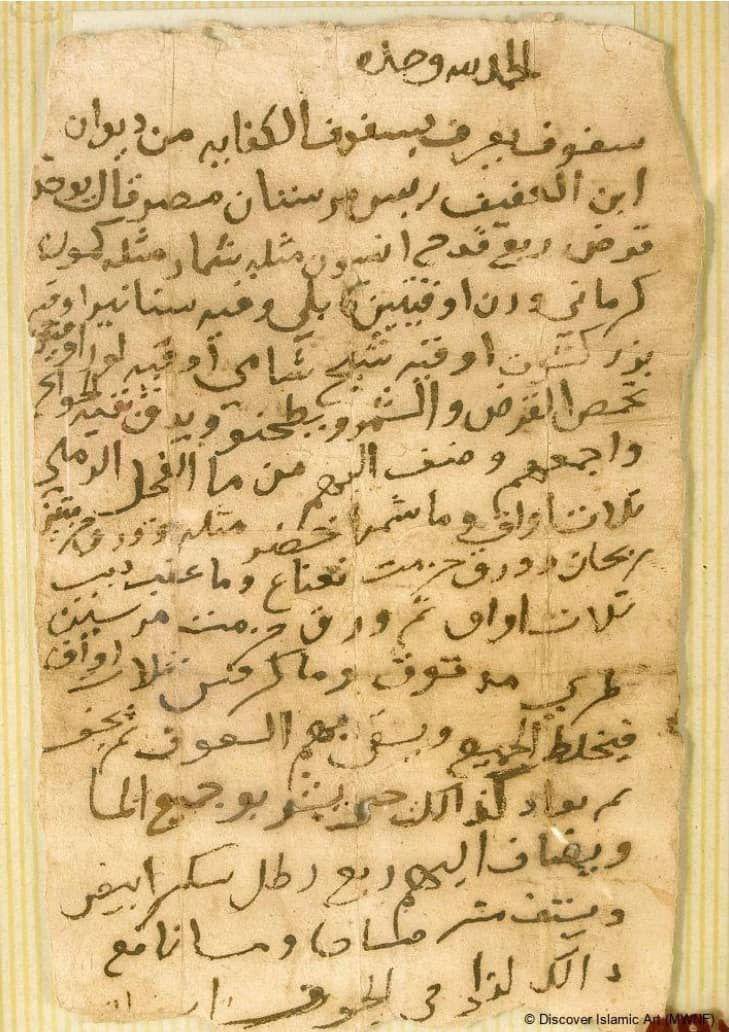 الحمد لله وحده
سفوف يعرف بسفوف الكفايه من ديوان
ابن العفيف ريس مرستان مصر قال يوخد
قرض ربع قدح انيسون مثله شمار مثله كمون
كرماني وزن اوقيتين كابلي وقيه سنا اوقيه
بزر اوقيه شيح شامي اوقيه
تحمص القرض والشمر ويطحنو ويدق بقيه الحوايج
واجمعهم وضف اليهم من ما الفجل الرملي
تلات اواق وما شمر اخضر مثله وورق
ريحان وورق حزمت نعناع وما عنب ديب
تلات اواق تم ورق حزمت مرسين
طري مدقوق وما كرفس تلات اواق
فيخلط الجميع ويسقى بهم السفوف تم يجفف
تم يعاد كذالك حتى يشربو جميع الما
ويضاف اليهم ربع رطل سكر ابيض
ويستف منه صباحا ومسا نافع
دالك في الجوف
© Discover Islamic Art (MWNF)